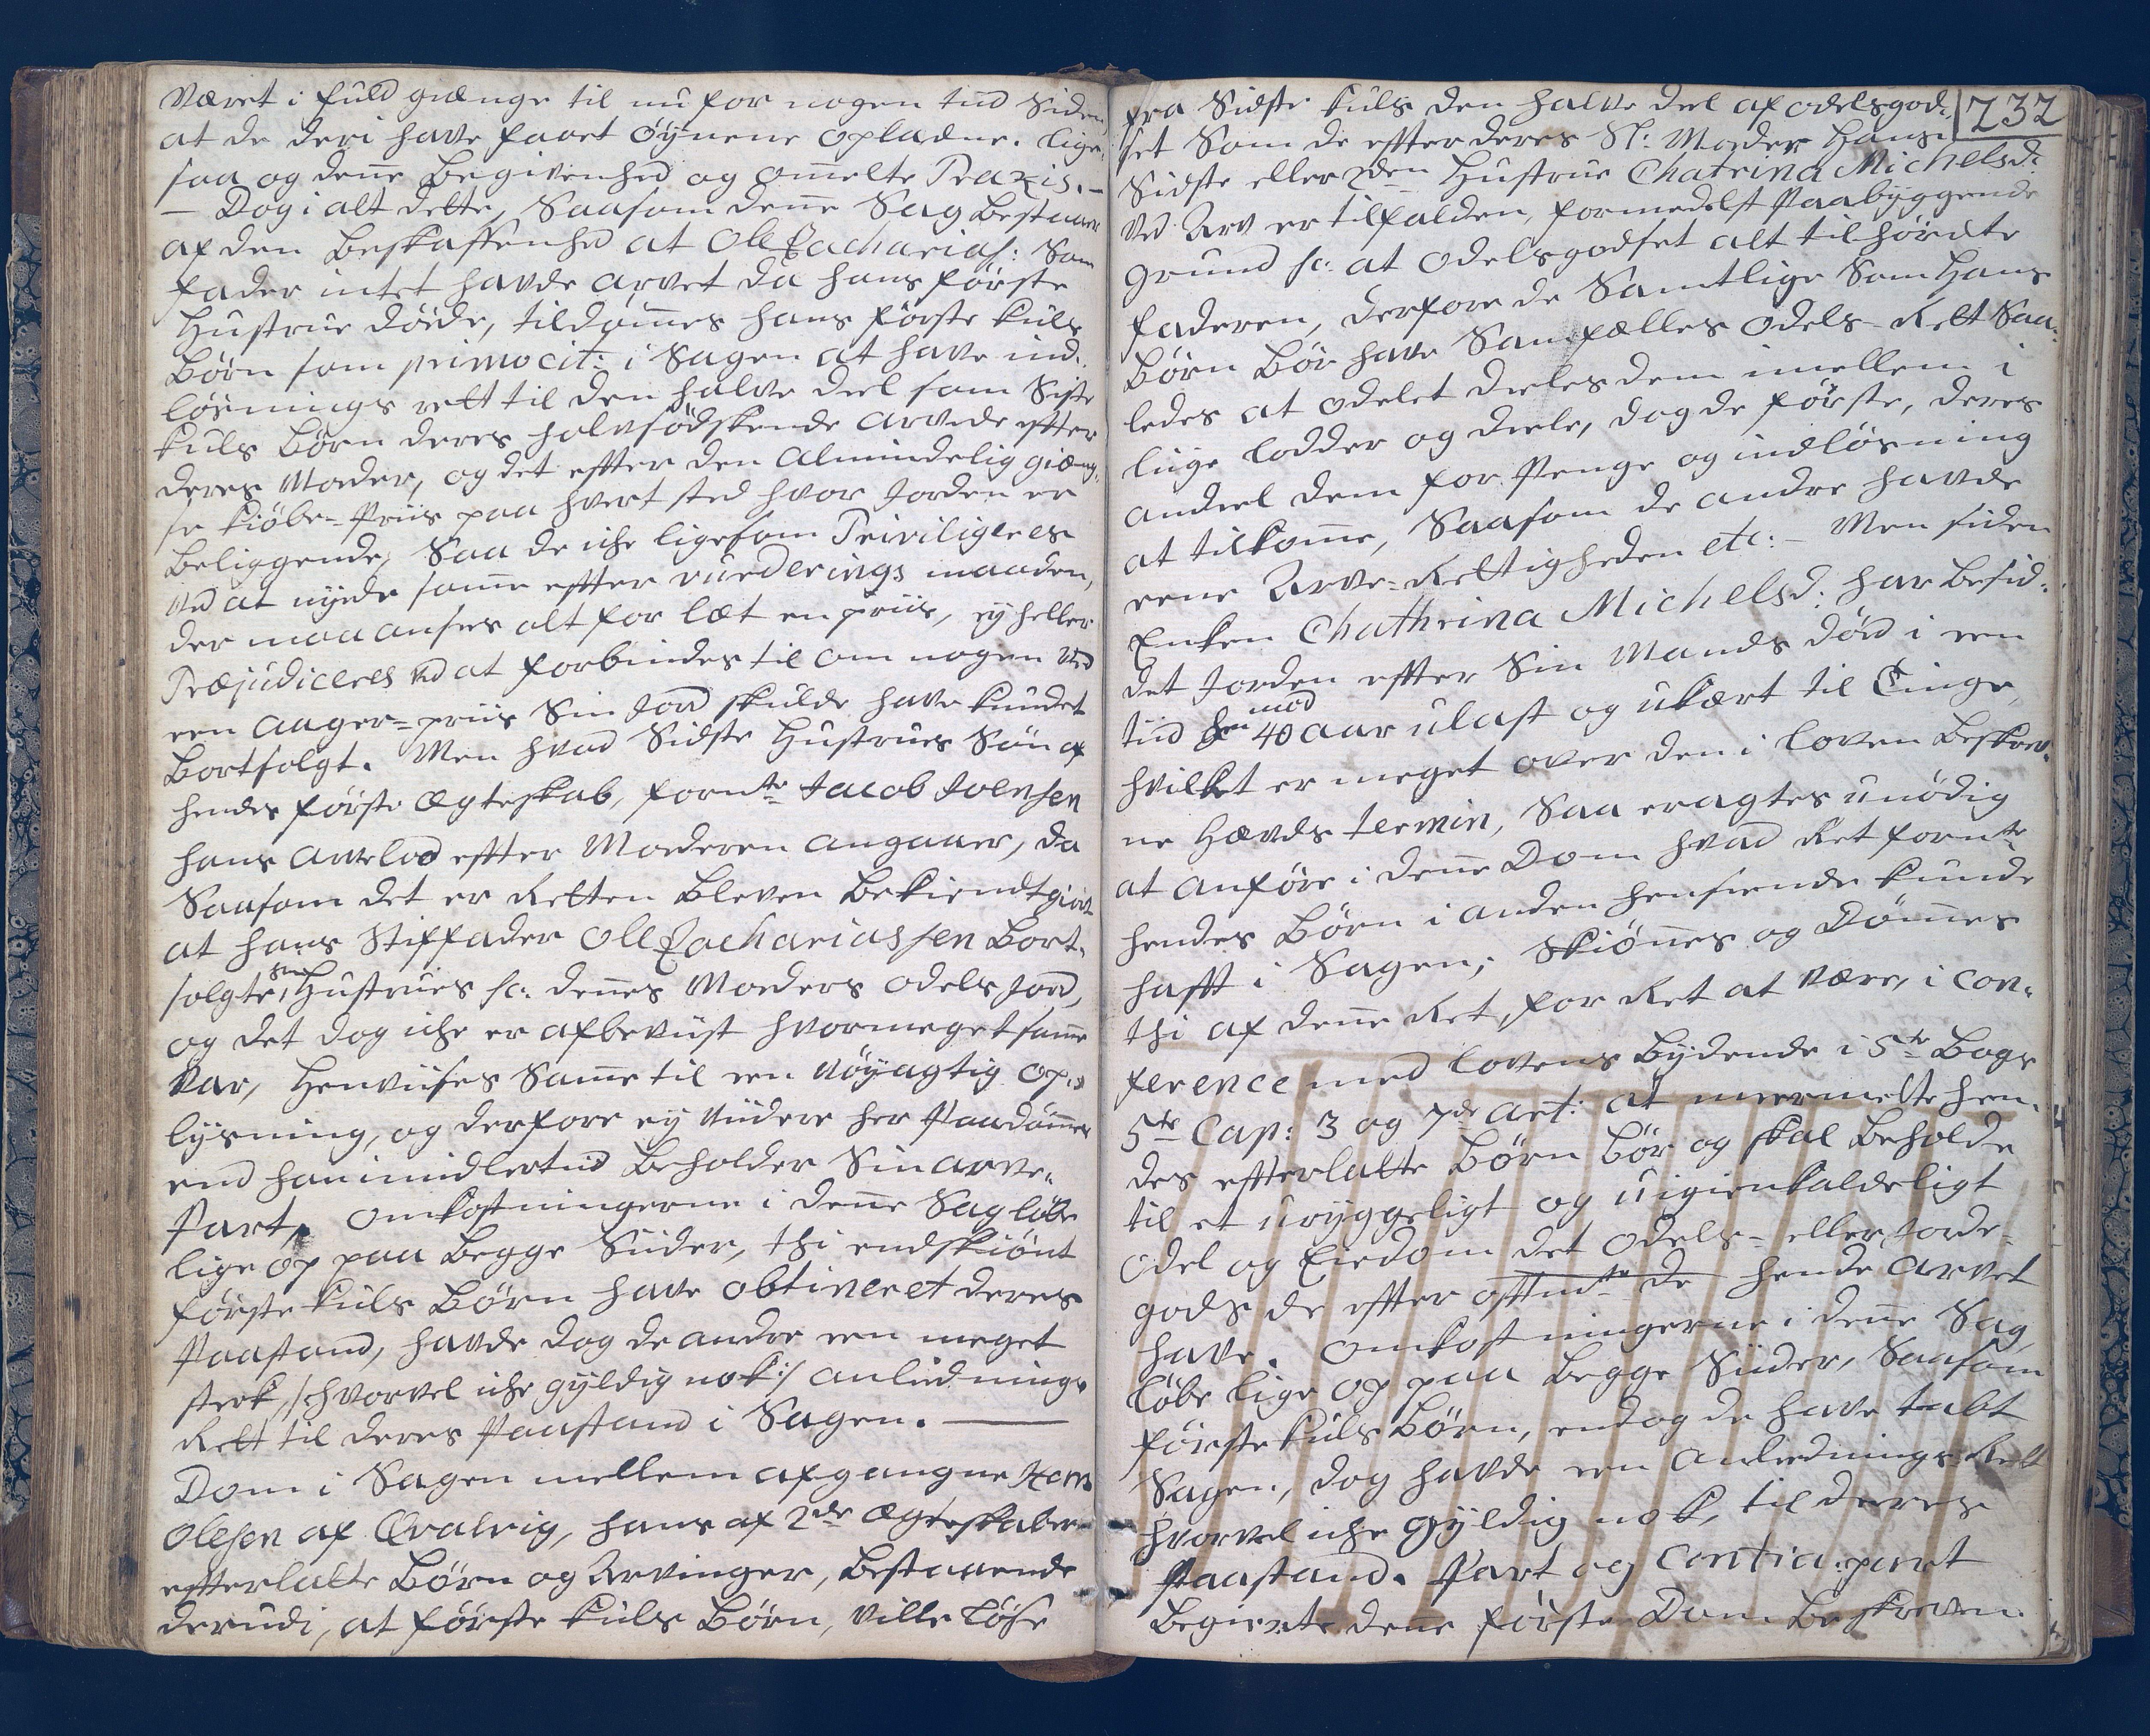 Været i fuld giænge til nu for nogen tid siden,
at de deri have faaet Øÿnene opladne. lige-
saa og denne Begivenhed og ommelte Praxis. -
- Dog i alt dette, Saasom denne Sag bestaaer
af den Beskaffenhed at Ole Zacharias: Som
fader intet havde arvet da hans første
Hustrue døde, tildømmes hans første kuls
Børn som primo cit: i Sagen at have ind-
løsnings rett til den halve deel som Siste
kuls Børn deres halvsødskende arvede efter
deres Moder, og det effter den Almindelig giæng-
se kiøbe-Priis paa hvert sted hvor Jorden er
Beliggende, Saa de iche ligesom Priviligeres
ved at nyde samme effter vurderings maaden,
der maa ansees alt for læt en priis, eÿ heller
Præjudiceres ved at forbindes til om nogen ved
een auger-priis Sin Jord skulde have kundet
Bortsolgt. Men hvad Sidste Hustrues Søn af
hendes første Ægteskab, fornte Jacob Joensen
hans arvelod effter Moderen angaaer, da
Saasom det er Retten bleven bekiendtgiort
at hans Stiffader Ole Zachariassen bort-
solgte sin Hustrues sc: dennes Moders odels Jord,
og det dog iche er afbeviist hvormeget samme
var, Henviises Samme til een Nøÿagtig op-
lÿsning, og derfore eÿ viidere her Paadømmes
end han imidlertid beholder Sin arve-
Part, Omkostningerne i denne Sag løbe
lige op paa Begge Siider, thi endskiønt
første kuls Børn have obtineret deres
Paastand, havde dog de andre een meget
sterk /: hvorvel iche gÿldig nok :/ anlednings
Rett til deres Paastand i Sagen. -
Dom i Sagen mellem afgangne
Olesen af Qvalvig, hans af 2de Ægteskaber
efterlatte Børn og Arvinger, bestaaende
derudi, at første kuls Børn, ville løse
732
fra Sidste kuls den halve deel af odelsgod-
set Som de effter deres Sl: Moder Hans
Sidste eller 2den Hustrue Chatrina Michelsd:
ved Arv er tilfalden, formedelst Paabÿggende
grund sc: at odelsgodset alt tilhørdte
faderen, derfore de Samtlige Som Hans
Børn bør have Samfælles Odels-Rett Saa-
ledes at odelet deeles dem imellem i
liige lodder og deele, dog de første, deres
andeel dem for Penge og indløsning
at tilkomme, Saasom de andre havde
eene Arve-Rettigheden etc: - Men siden
Enken Chathrina Michelsd: har besid-
det Jorden effter Sin Mands død i een
tiid hen mod 40 aar ulast og ukært til Tinge,
hvilket er meget over den i loven beskrev-
ne Hævds termin, Saa eragtes unødig
at anføre i denne Dom hvad Ret fornte
hendes Børn i anden henseende kunde
hafft i Sagen; Skiønnes og Dømmes
thi af denne Ret, for Ret at være, i con-
ference med lovens bÿdende i 5te Bogs
5te Cap: 3 og 7de art: at meermelte hen-
des effterlatte Børn bør og skal beholde
til et urÿggeligt og uigienkaldeligt
Odel og Eiedom det odels- eller Jorde-
gods de effter offtnte de hende arvet
have. Omkostningerne i denne Sag
løbe lige op paa Begge Siider, Saasom
første kuls Børn, endog de have tabt
Sagen, dog havde een anlednings Rett
hvorvel iche gÿldig nok, til deres
Paastand. Part og Contra-part
Begierte denne første Dom beskreven